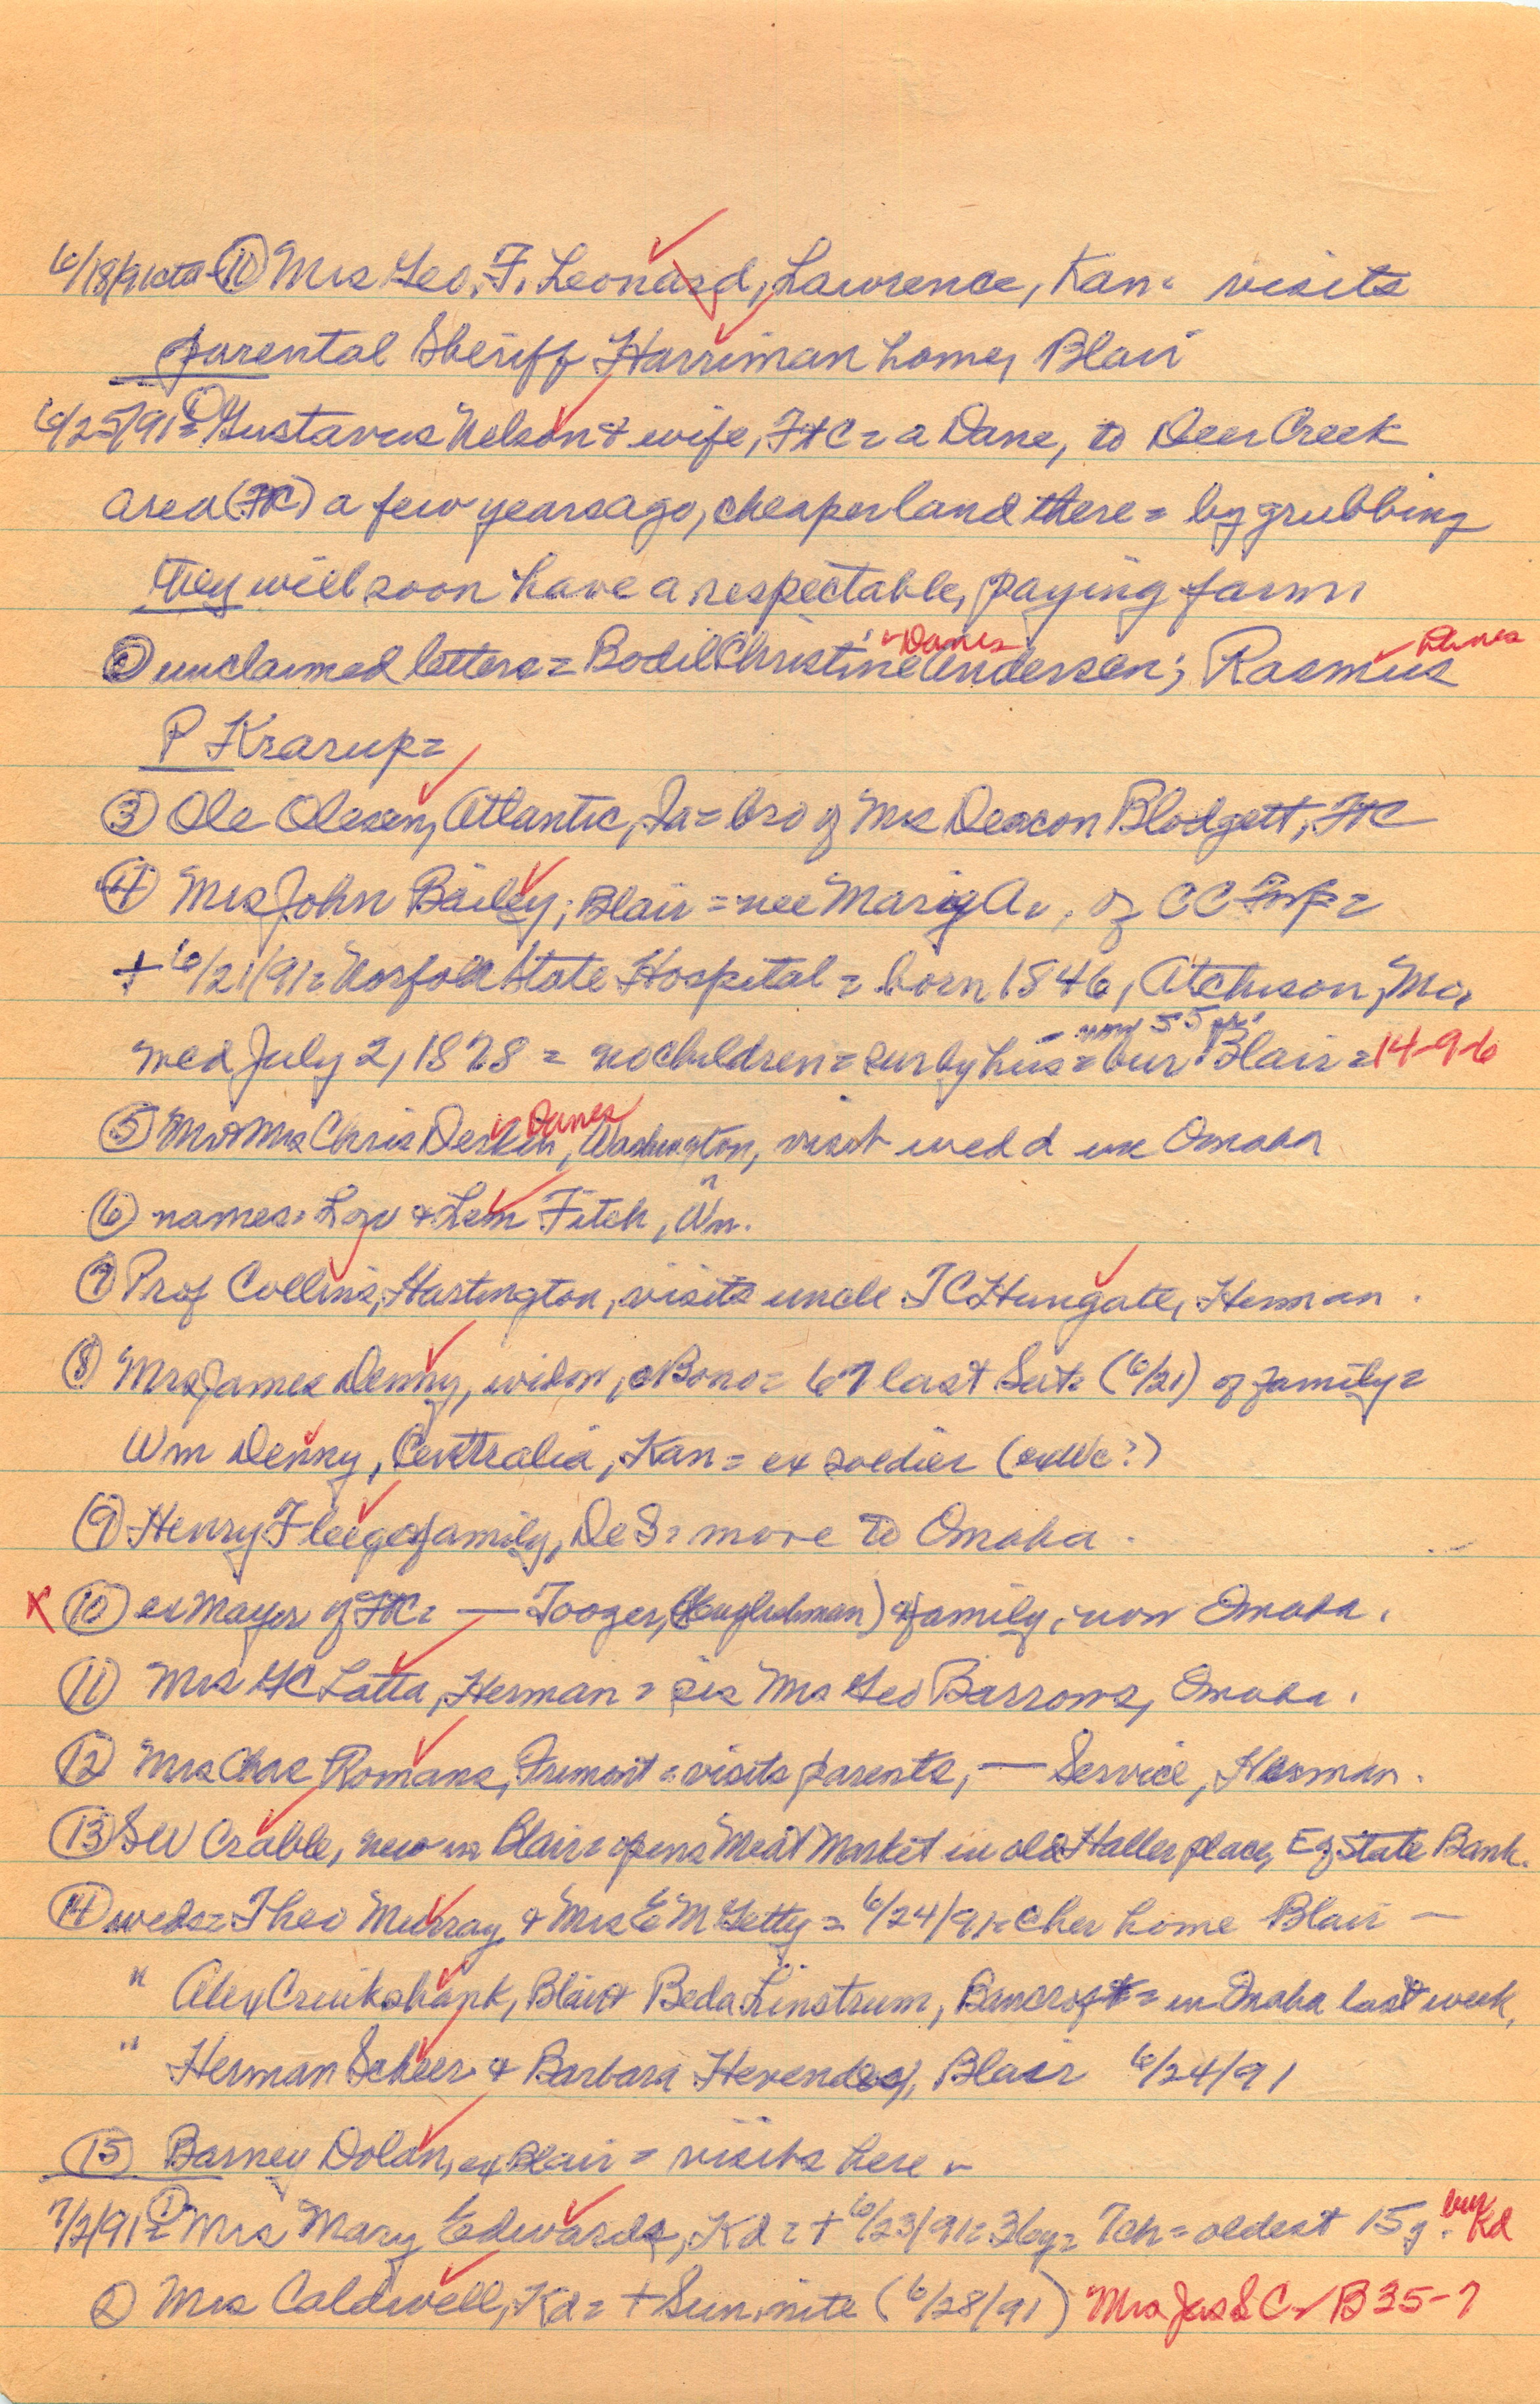 6/18/91ctd (11) Mrs Geo. F. Leonard, Lawrence, Kan. visits
parental Sheriff Harriman home, Blair
6/25/91= (1) Gustavus Nelson & wife, FtC = a Dane, to Deer Creek
area (FtC) a few years ago, cheaper land there = by grubbing
they will soon have a respectable, paying farm.
(2) unclaimed letters = Bodil Christine Andersen; Rasmus
Danes Danes
P Krarup=
(3) Ole Olesen, Atlantic, Ia = bro of Mrs Deacon Blodgett, FtC
(4) Mrs John Bailey; Blair = nee A., of CC
+ 6/21/91= Norfolk State Hospital = born 1846, Atchison, Mo,
med July 2, 1878 = no children = sur by hus = bur Blair = 14-9-6
(5) Mr & Mrs Chris , Washington, visit wedd in Omaha
Danes
(6) names= Lou & Lem Fitch, Wn.
(7) Prof Collins, Hartington, visits uncle TC Hungate, Herman.
(8) Mrs James Denny, widow, = 67 last Sat= (6/21) of family=
Wm Denny, Centralia, Kan = ex soldier (exWc?)
(9) Henry Fleege & family, DeS = move to Omaha.
x (10) ex Mayor of FtC = — Tooger, (Englishman) & family, now Omaha.
(11) Mrs GC Latta, Herman = sis Mrs Geo Barrows, Omaha.
(12) Mrs Chas Romans, Fremont = visits parents, — Service, Herman.
(13) SW Crabble, new in Blair = opens Meat Market in old Haller place, E of State Bank.
(14) weds= Theo Murray & Mrs E M Getty = 6/24/91= @ her home Blair —
" Alex Cruikshank, Blair & Beda Linstrum, Bancroft = in Omaha last week,
" Herman Scheer & Barbara , Blair 6/24/91
(15) Barney Dolan, ex Blair = visits here -
7/2/91= (1) Mrs Mary Edwards, Kd = + 6/23/91= 36y= 7ch = oldest 15y. bur Kd
(2) Mrs Caldwell, Kd = + Sun. nite (6/28/91) Mrs Jas S C B35-7